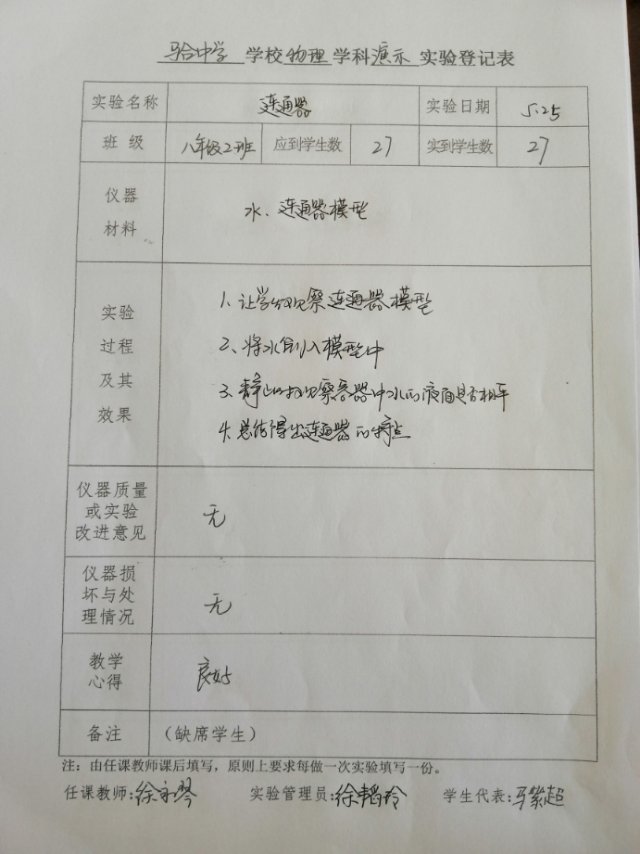 马合中学 学校 物理 学科 演示 实验登记表
实验名称 连通器 实验日期 5.25
班 级 八年级2班 应到学生数 27 实到学生数 27
仪器
材料
水、连通器模型
实验
过程
及其
效果
1、让学生观察连通器模型
2、将水倒入模型中
3、静止时观察容器中水的液面是否相平
4、总结得出连通器的特点
仪器质量
或实验
改进意见
无
仪器损
坏与处
理情况
无
教学
心得
良好
备注 （缺席学生）
注：由任课教师课后填写，原则上要求每做一次实验填写一份。
任课教师：徐永琴 实验管理员：徐韬玲 学生代表：马紫超